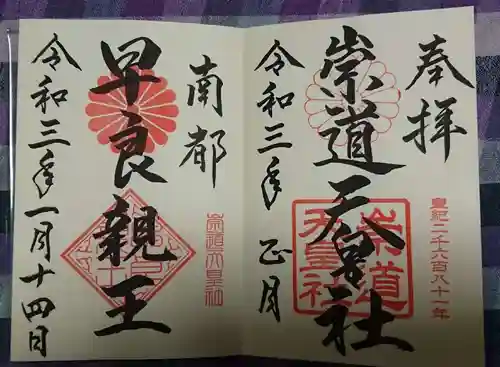 奉拝
皇紀二千六百八十一年
崇道天皇社
崇道
天皇社
令和三年 正月
南都
崇道天皇社
早良親王
令和三年一月十四日